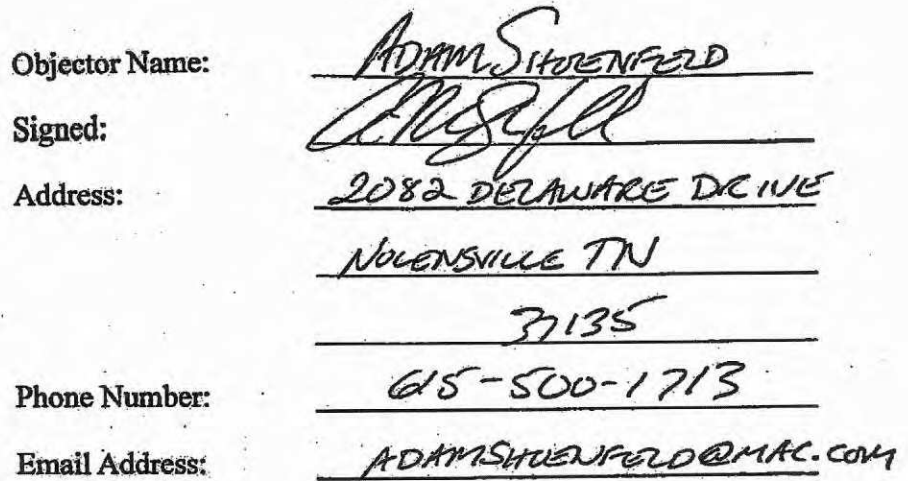 Objector Name: ADAM SHOENFELD
Signed:
Address: 2082 DELAWARE DRIVE
NOLENSVILLE TN
37135
Phone Number: 615-500-1713
Email Address: ADAMSHOENFELD@MAC.COM